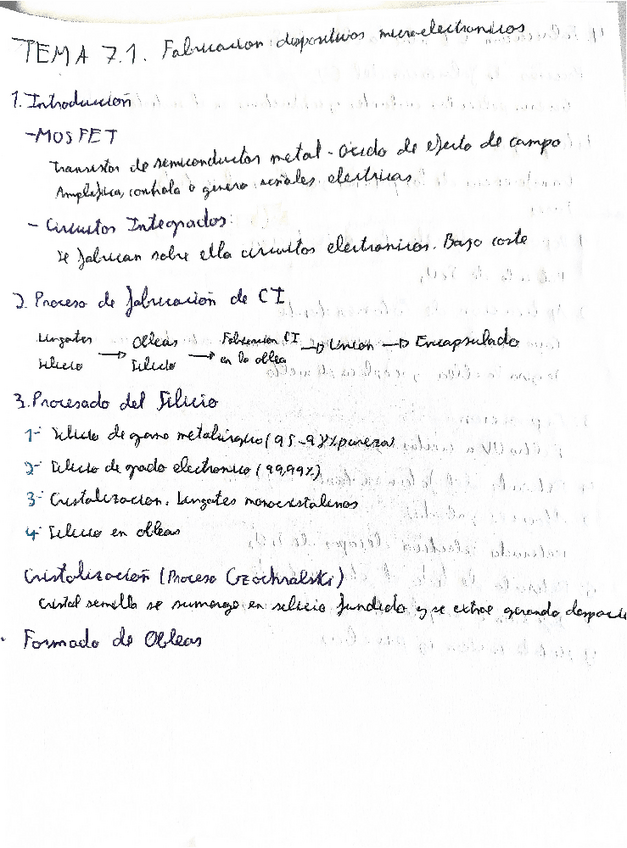 TEMA 7.1. Fabricacion dispositivos microelectronicos
1. Introducción
- MOSFET
Transistor de semiconductor metal - oxido de efecto de campo
Amplifica, controla o genera señales electricas
- Circuitos Integrados
Se fabrican sobre ella circuitos electronicos. Bajo coste
2. Proceso de fabricación de CI
Lingotes Silicio → Obleas Silicio → Fabricacion CI en la oblea → Union → Encapsulado
3. Procesado del Silicio
1- Silicio de grado metalúrgico (95-98% pureza)
2- Silicio de grado electronico (99,99%)
3- Cristalizacion. Lingotes monocristalinos
4- Silicio en obleas
Cristalización (Proceso Czochralski)
Cristal semilla se sumerge en silicio fundido y se extrae girando
Formado de Obleas